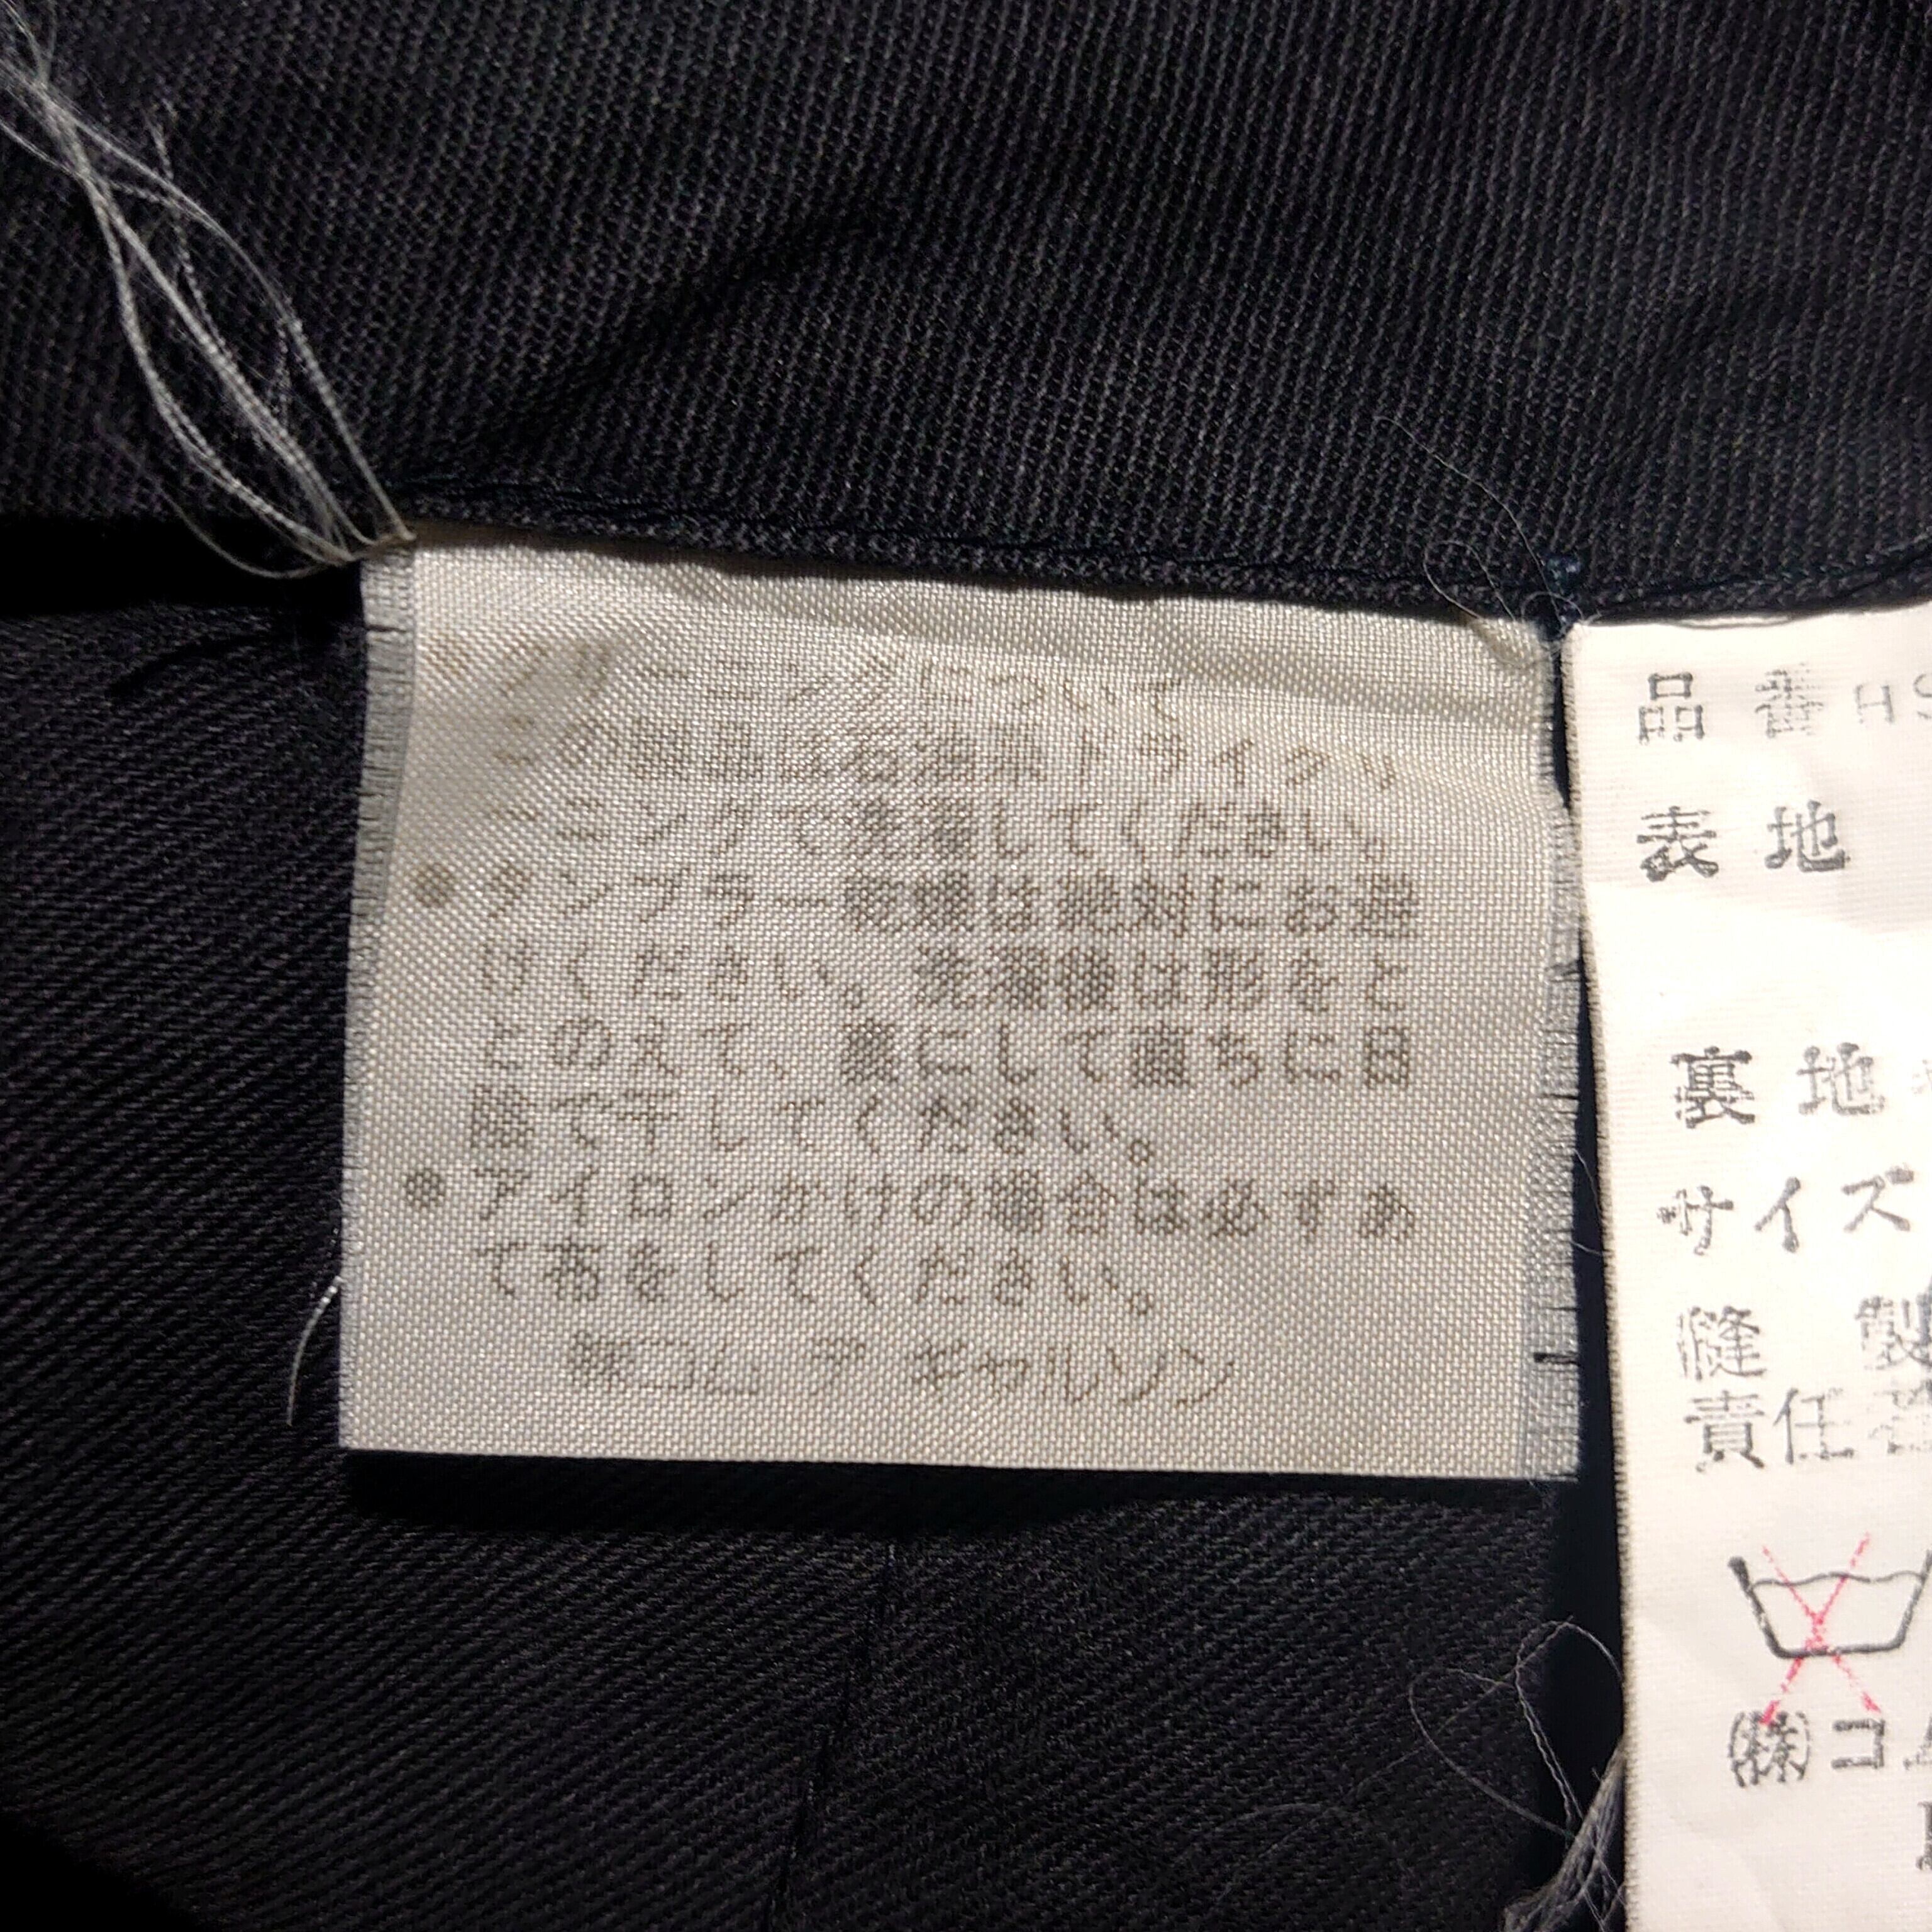 クリーニングについて
この製品は必ずドライクリ
ーニングで洗濯してください。
●タンブラー乾燥は絶対にお避
けください。洗濯後は形をと
とのえて、裏にして直ちに日
陰で干してください。
●アイロンかけの場合は必ずあ
て布をしてください。
㈱コム デ ギャルソン
品番HS
表地
裏地
サイズ
縫製
責任者
㈱コム